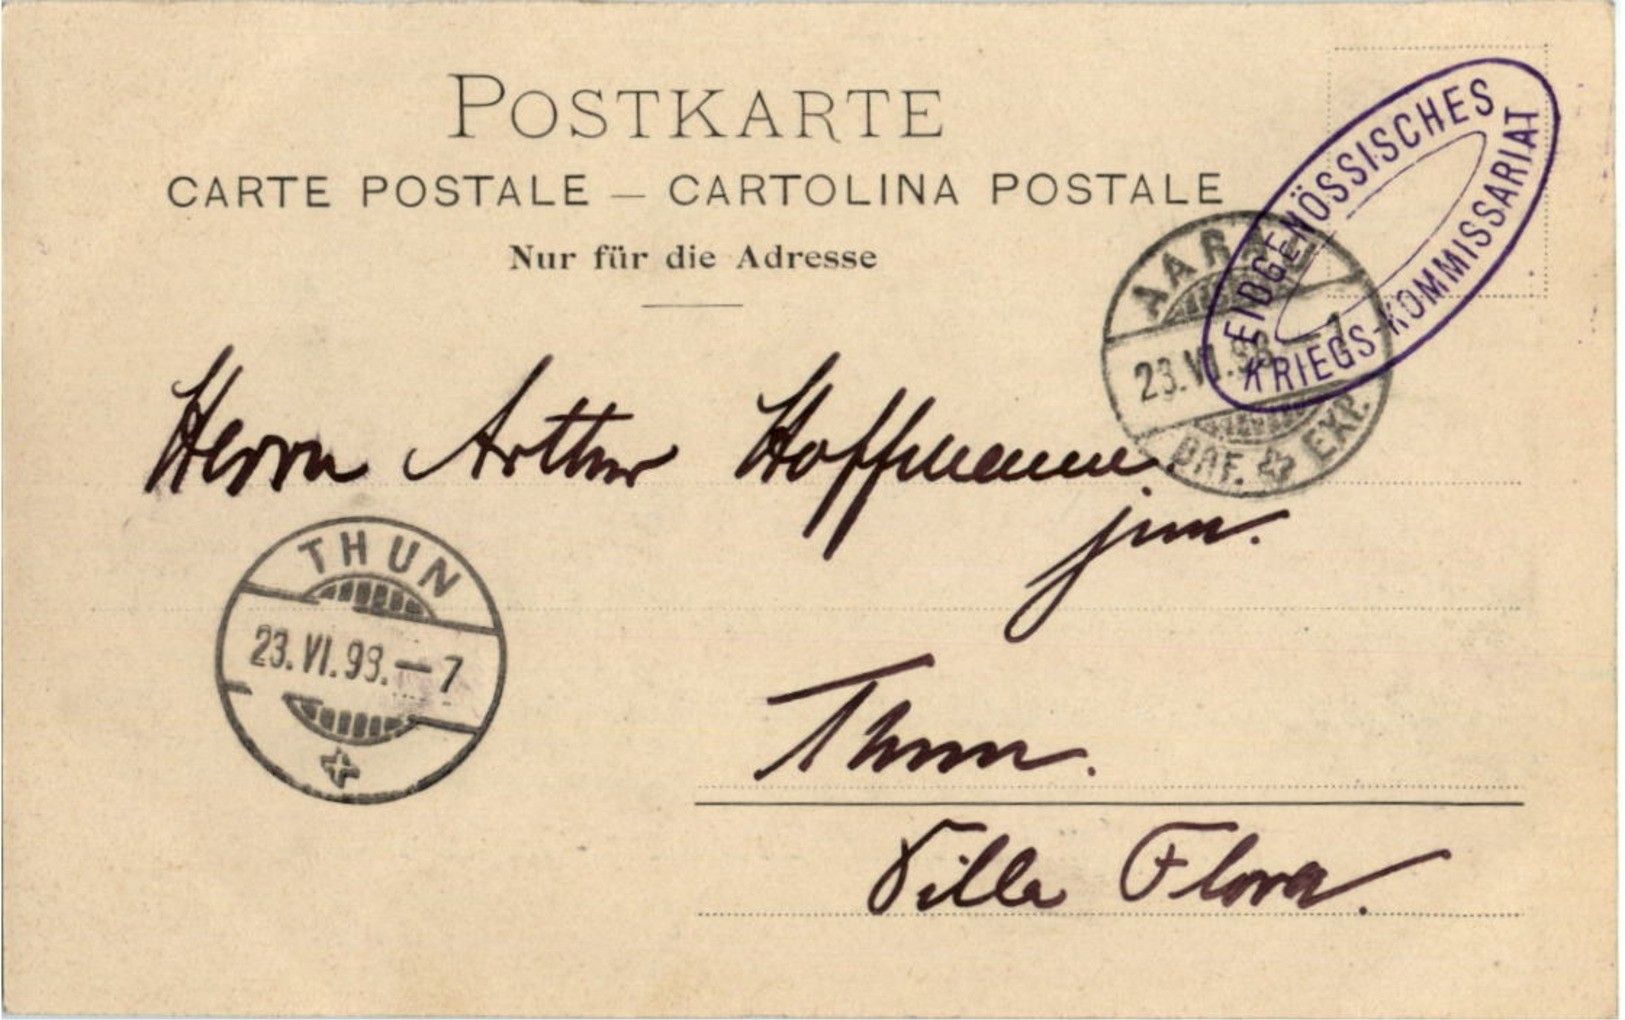 POSTKARTE
CARTE POSTALE — CARTOLINA POSTALE
Nur für die Adresse
EIDGENÖSSISCHES
KRIEGS-KOMMISSARIAT
AARAU
23.VI.98.—7
BRF. EXP.
Herrn Arthur Hoffmann
jun.
THUN
23.VI.98.—7
Thun.
Villa Flora.